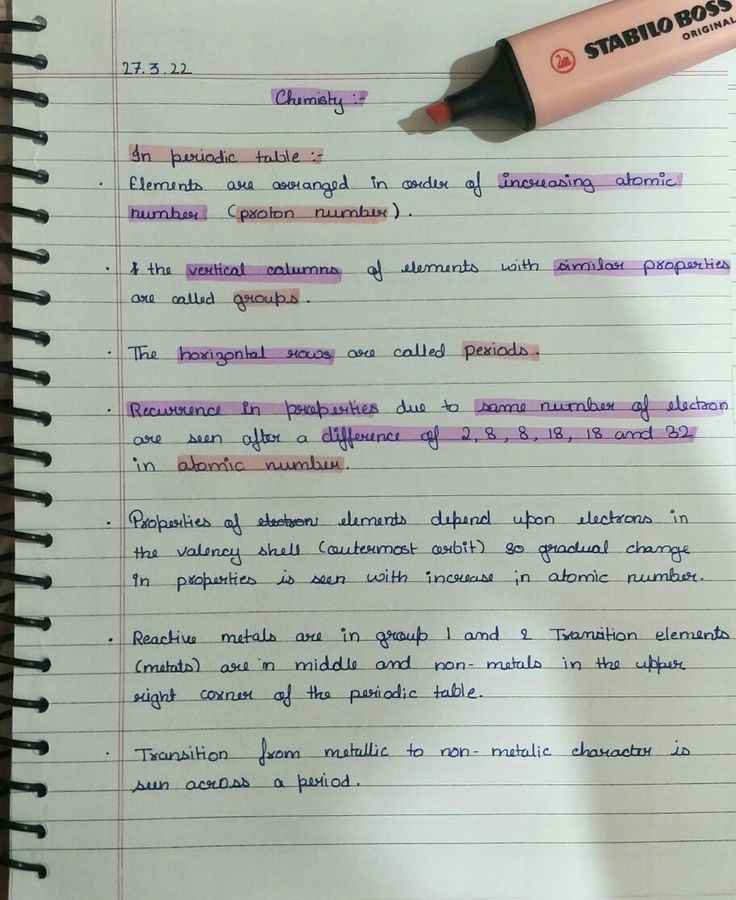 STABILO BOSS
ORIGINAL
27.3.22
Chemisty :-
In periodic table :-
. Elements are arranged in order of increasing atomic
number (proton number).
. the vertical columns of elements with similar properties
are called groups.
. The horizontal rows are called periods.
. Recurrence in properties due to same number of electron
are seen after a difference of 2, 8, 8, 18, 18 and 32
in atomic number.
. Properties of electron elements depend upon electrons in
the valency shell (outermost orbit) so gradual change
in properties is seen with increase in atomic number.
. Reactive metals are in group 1 and 2 Transition elements
(metals) are in middle and non-metals in the upper
right corner of the periodic table.
. Transition from metallic to non-metalic character is
seen across a period.